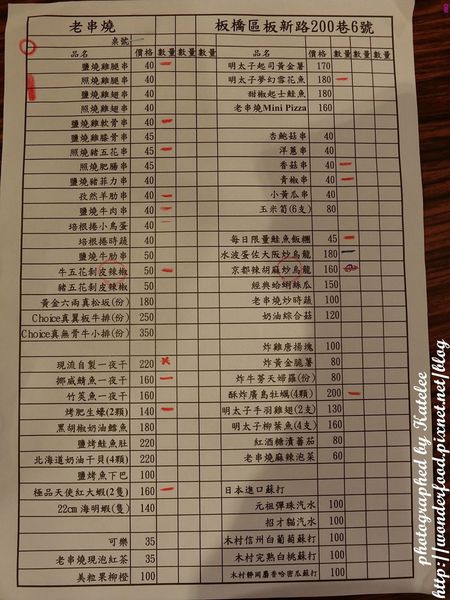 老串燒
板橋區板新路200巷6號
桌號
品名 價格 數量 數量 數量
鹽燒雞腿串 40
照燒雞腿串 40
鹽燒雞翅串 40
照燒雞翅串 40
鹽燒雞軟骨串 40
鹽燒雞膝串 45
照燒豬五花串 45
照燒肥腸串 45
鹽燒豬菲力串 40
孜然羊肋串 40
鹽燒牛肉串 40
培根捲小鳥蛋 40
培根捲時蔬 40
鹽燒牛肋串 50
牛五花剝皮辣椒 50
豬五花剝皮辣椒 50
黃金六兩真松坂(份) 180
Choice真翼板牛排(份) 250
Choice真無骨牛小排(份) 350
現流自製一夜干 220
挪威鯖魚一夜干 160
竹筴魚一夜干 160
烤肥生蠔(2顆) 140
黑胡椒奶油鱈魚 180
鹽烤鮭魚肚 220
北海道奶油干貝(4顆) 220
鹽烤魚下巴 100
極品天使紅大蝦(2隻) 160
22cm 海明蝦(隻) 140
可樂 35
老串燒現泡紅茶 35
美粒果柳橙 100
品名 價格 數量 數量 數量
明太子起司黃金薯 170
明太子夢幻雪花魚 180
甜椒起士鮭魚 180
老串燒Mini Pizza 160
杏鮑菇串 40
洋蔥串 40
香菇串 40
青椒串 40
小黃瓜串 40
玉米筍(6支) 80
每日限量鮭魚飯糰 45
水波蛋佐大阪炒烏龍 180
京都辣胡麻炒烏龍 160
經典蛤蜊絲瓜 150
老串燒炒時蔬 100
奶油綜合菇 120
炸雞唐揚塊 100
炸黃金脆薯 80
炸牛蒡天婦羅(份) 80
酥炸廣島牡蠣(4顆) 200
明太子手羽雞翅(2支) 130
明太子柳葉魚(4支) 160
紅酒糖漬蕃茄 80
老串燒麻辣泡菜 60
日本進口蘇打
元祖彈珠汽水 100
招才貓汽水 100
木村信州白葡萄蘇打 100
木村完熟白桃蘇打 100
木村靜岡麝香哈密瓜蘇打 100
photographed by Katelee
http://wonderfood.pixnet.net/blog